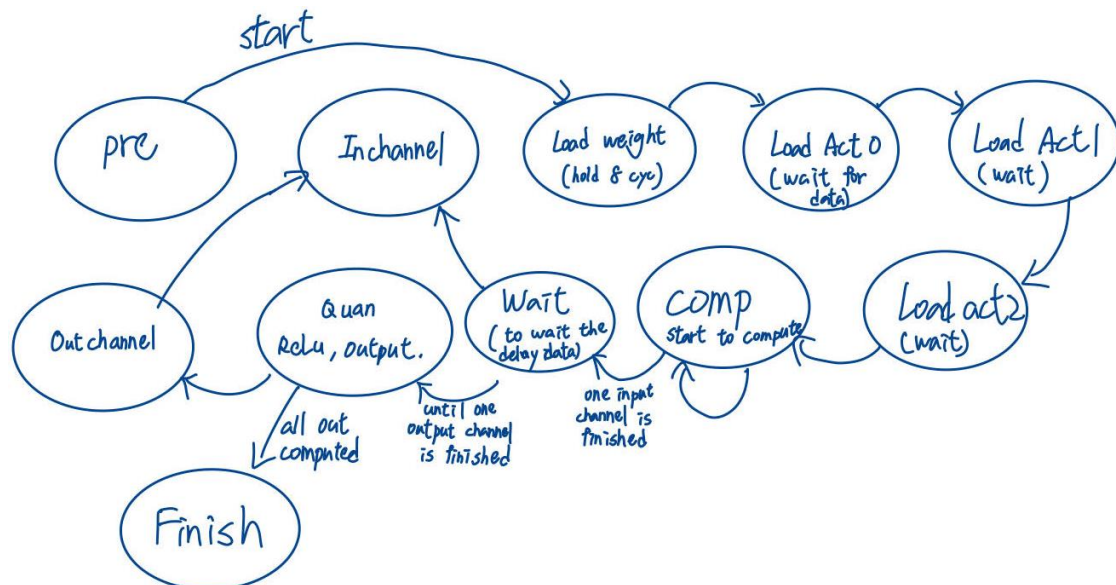 start
pre
Inchannel
Load weight
(hold & cyc)
Load Act 0
(wait for
data)
Load Act1
(wait)
Outchannel
Quan
Relu, output.
Wait
(to wait the
delay data)
comp
start to compute
Load act2
(wait)
all out
computed
until one
output channel
is finished
one input
channel is
finished
Finish